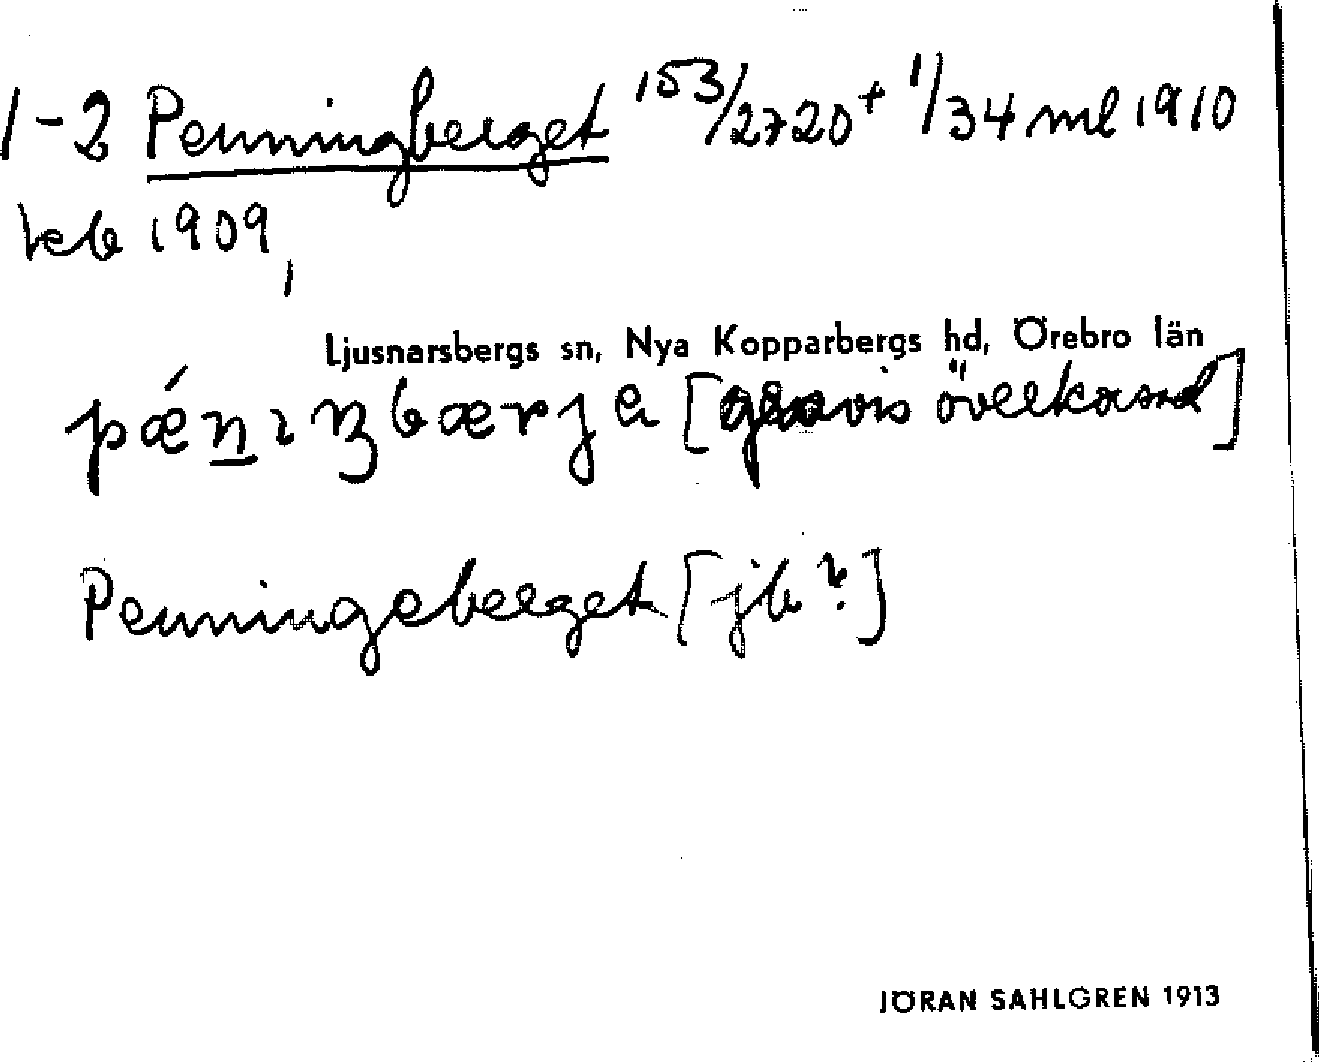 1-2 Penningberget 153/2720 + 1/34 ml 1910
keb 1909,
Ljusnarsbergs sn, Nya Kopparbergs hd, Örebro län
pǽn̲ıŋbærjɐ [gravis överkorsad]
Penningeberget [jb?]
JÖRAN SAHLGREN 1913